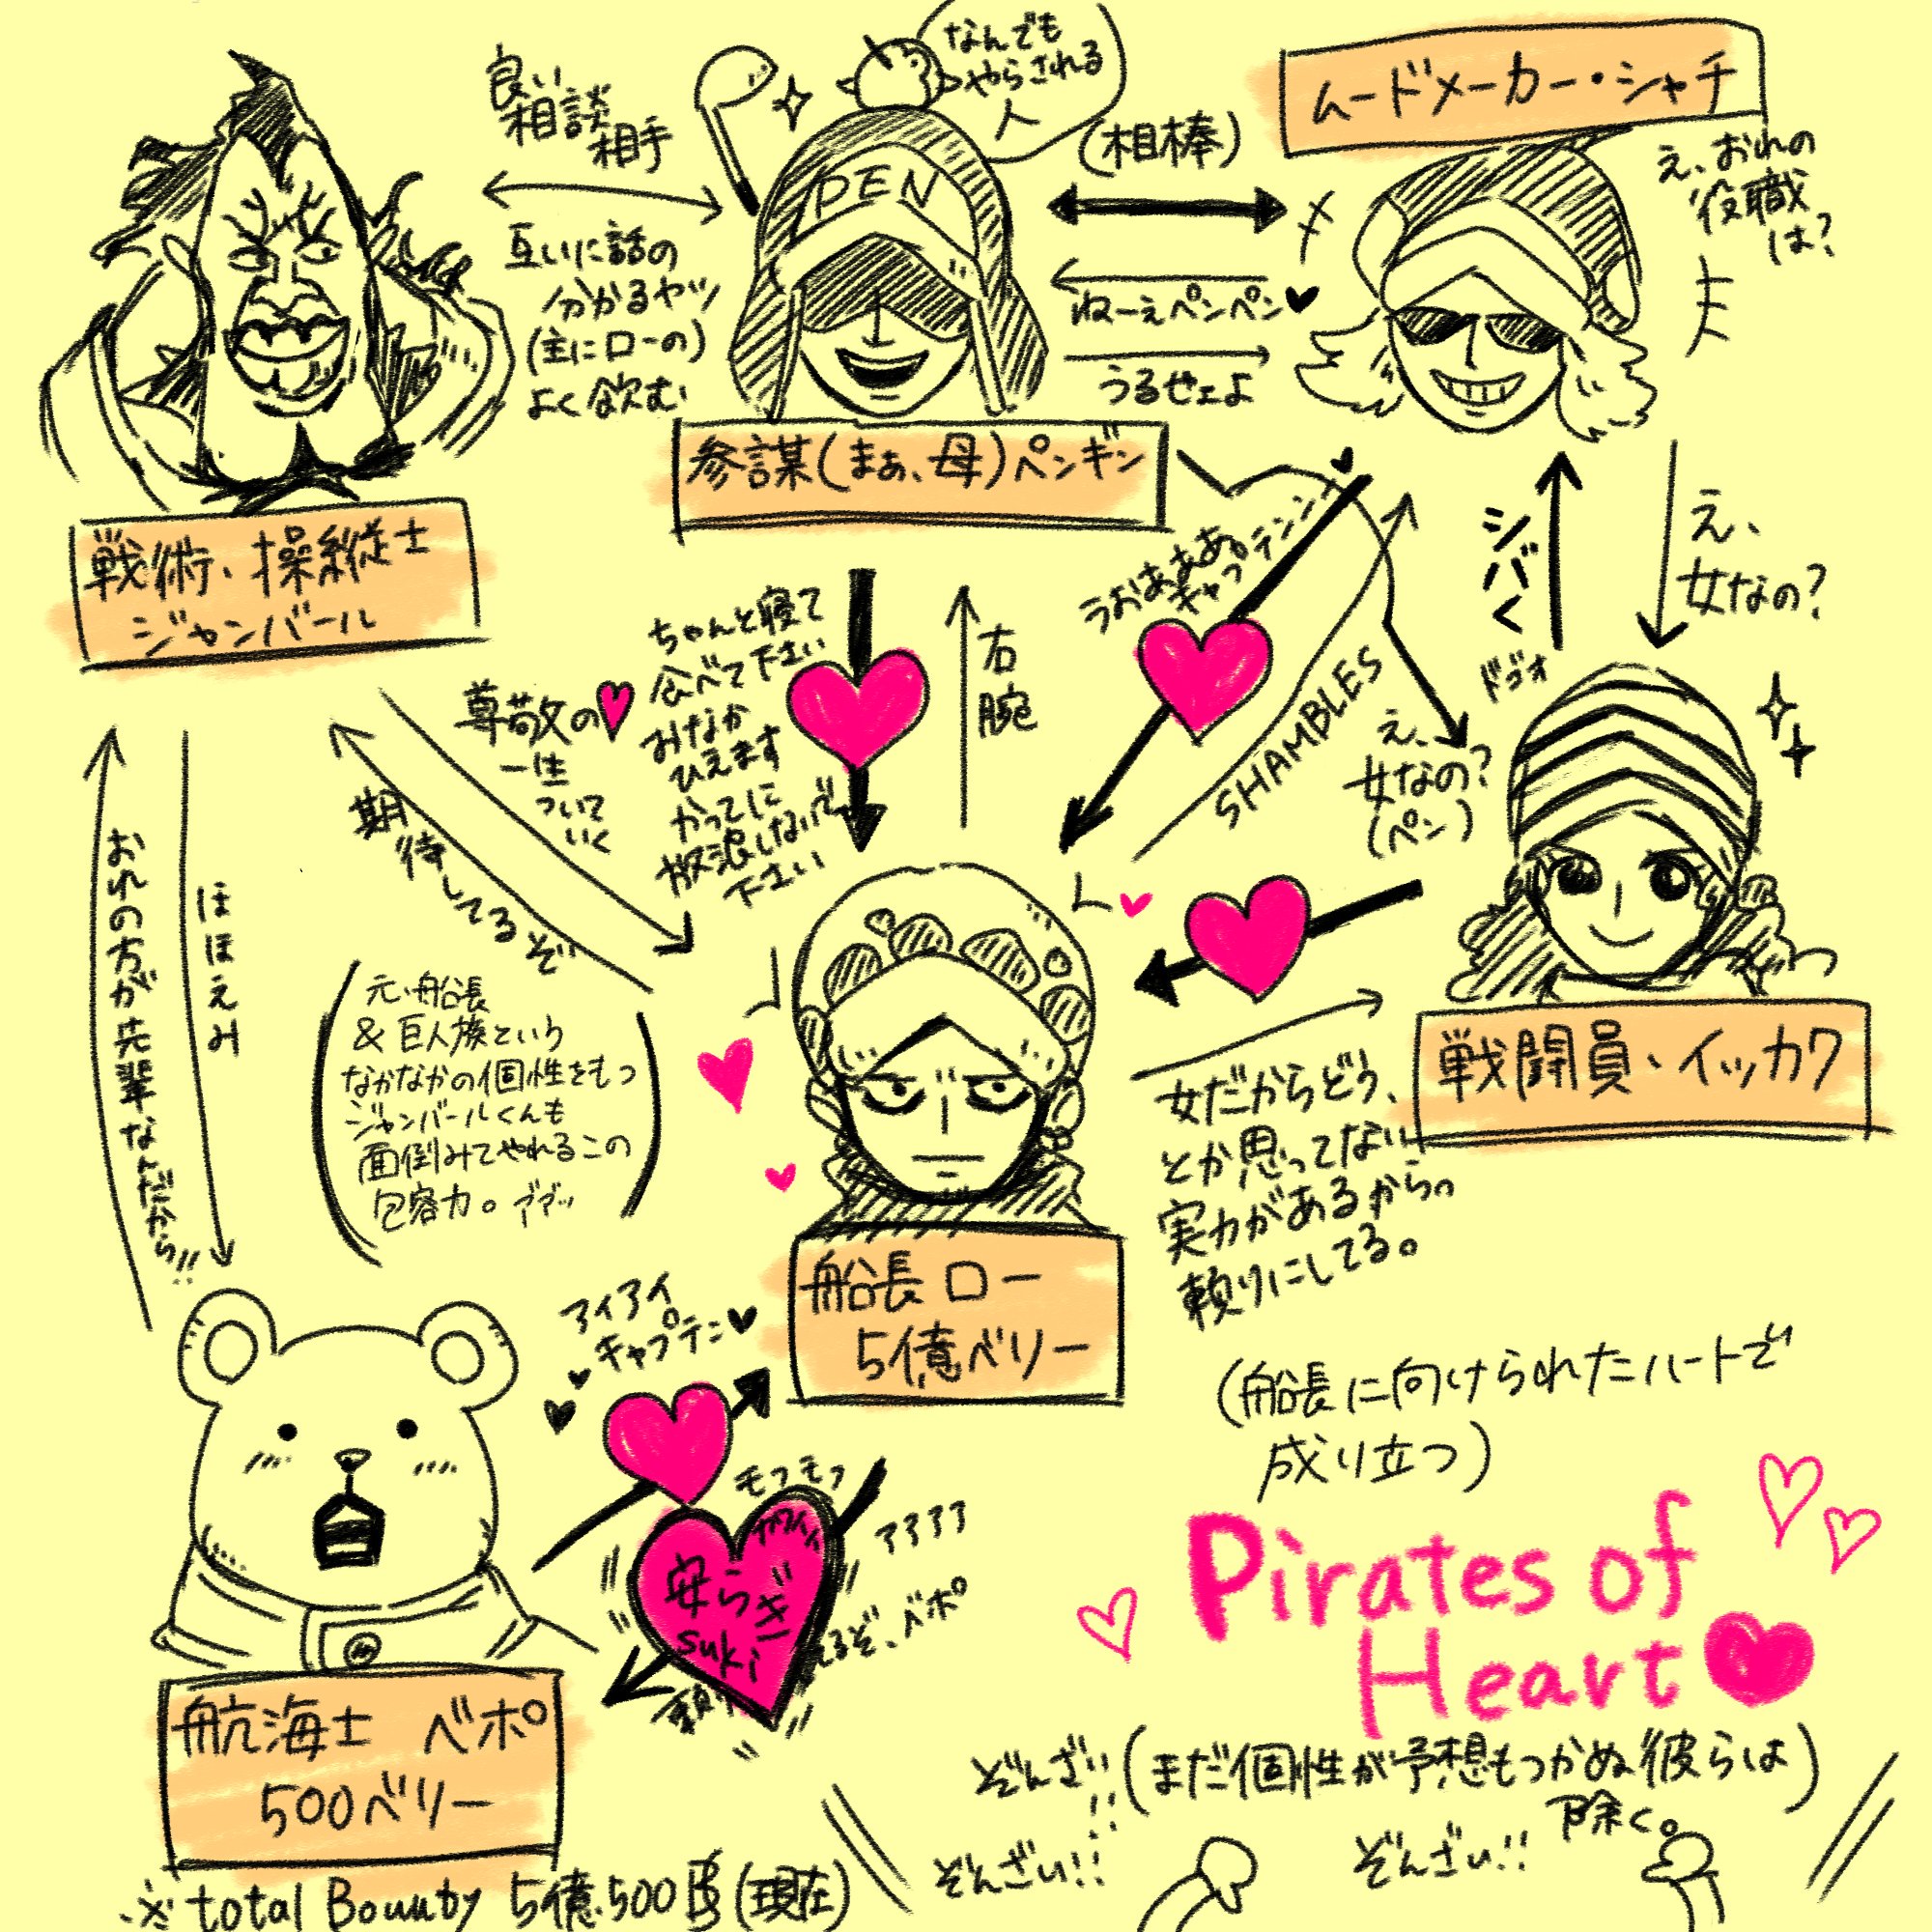 良い
相談
相手
互いに話の
分かるヤツ
(主にローの)
よく飲む
なんでも
やらされる
人
PEN
(相棒)
ねーえペンペン♥
うるせェよ
ムードメーカー・シャチ
え、おれの
役職
は?
参謀(まぁ、母)ペンギン
戦術、操縦士
ジャンバール
尊敬の
一生
ついて
いく
期待してるぞ
ちゃんと寝て
食べて下さい
おなか
ひえます
かってに
放浪しないで
下さい
右腕
うおぁぁああ
キャプテンン
SHAMBLES
え、
女なの?
(ペン)
シバく
ドゴォ
え、
女なの?
戦闘員、イッカク
女だからどう、
とか思ってない
実力があるから。
頼りにしてる。
おれの方が先輩なんだから!!
ほほえみ
元、船長
& 巨人族という
なかなかの個性をもつ
ジャンバールくんも
面倒みてやれるこの
包容力。
船長 ロー
5億ベリー
アイアイ
キャプテン♥
モフモフ
安らぎ
suki
航海士 ベポ
500ベリー
(船長に向けられたハートで
成り立つ)
Pirates of
Heart
ぞんざい!!
(まだ個性が予想もつかぬ彼らは
除く。)
ぞんざい!!
ぞんざい!!
※total Bounty 5億.500฿(現在)